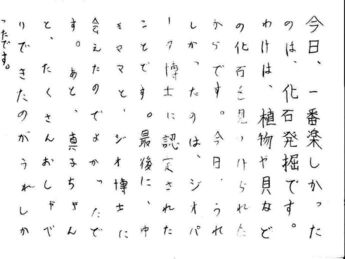 今日、一番楽しかった
のは、化石発掘です。
わけは、植物や貝など
の化石を見つけられた
からです。今日、うれ
しかったのは、ジオパ
ーク博士に認定された
ことです。最後に、中
もママと、ジオ博士に
会えたのでよかったで
す。あと、真子ちゃん
と、たくさんおしゃべ
りできたのがうれしか
ったです。